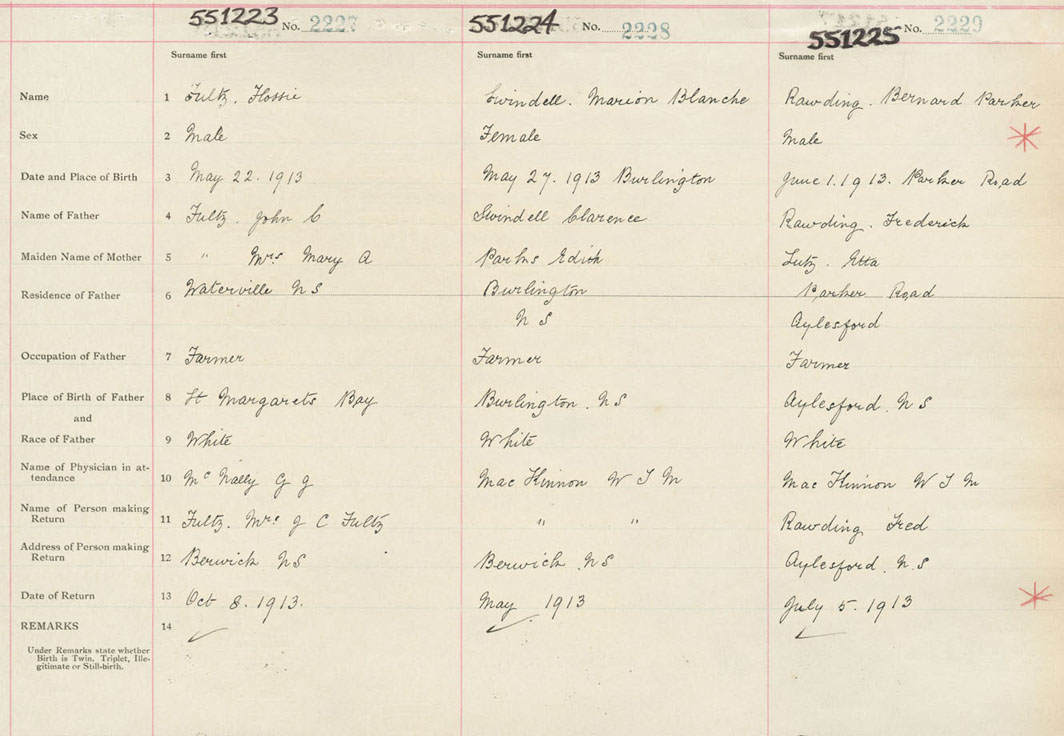 551223 No. 2227 551224 No. 2228 551225 No. 2229
Surname first Surname first Surname first
Name 1 Fultz. Flossie Swindell. Marion Blanche Rawding. Bernard Parker
Sex 2 Male Female Male
Date and Place of Birth 3 May 22. 1913 May 27. 1913 Burlington June 1. 1913. Parker Road
Name of Father 4 Fultz. John C Swindell Clarence Rawding. Frederick
Maiden Name of Mother 5 " Mrs Mary A Parks Edith Lutz. Etta
Residence of Father 6 Waterville N S Burlington Parker Road
N S Aylesford
Occupation of Father 7 Farmer Farmer Farmer
Place of Birth of Father 8 St Margarets Bay Burlington. N S Aylesford. N S
and
Race of Father 9 White White White
Name of Physician in at-
tendance 10 Mc Nally G J Mac Kinnon W T M Mac Kinnon W T M
Name of Person making
Return 11 Fultz. Mrs J C Fultz " " Rawding Fred
Address of Person making
Return 12 Berwick N S Berwick. N S Aylesford. N. S
Date of Return 13 Oct 8. 1913. May 1913 July 5. 1913
REMARKS 14
Under Remarks state whether
Birth is Twin, Triplet, Ille-
gitimate or Still-birth.